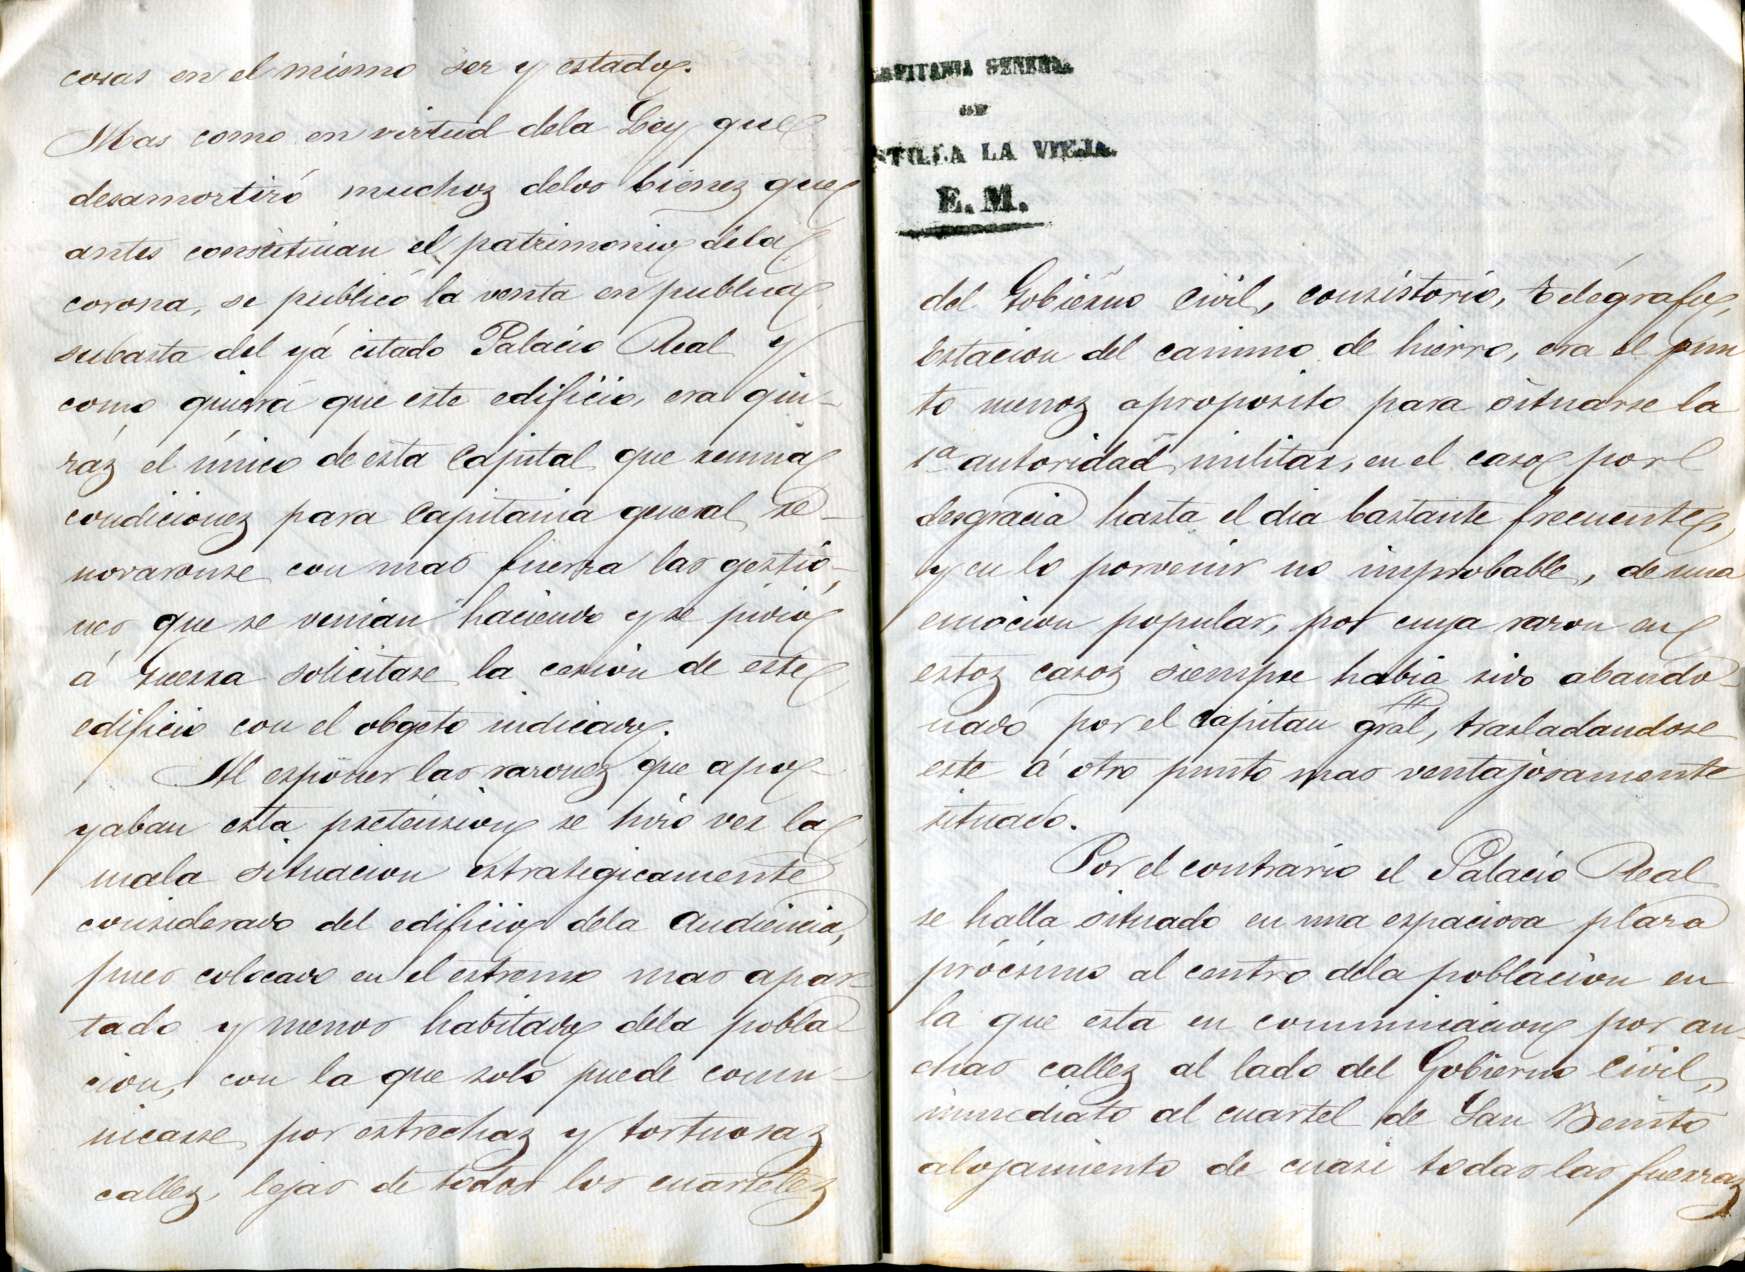 cosas en el mismo ser y estado.
Mas como en virtud dela Ley que
desamortizó muchos delos bienes que
antes constituian el patrimonio dela
corona, se publicó la venta en publica
subasta del yá citado Palacio Real y
como quierá que este edificio, era qui-
zás el único de esta Capital que reunia
condiciones para Capitania general, re-
novaronse con mas fuerza las gestio-
nes que se venian haciendo y se pidió
á Guerra solicitase la cesion de este
edificio con el obgeto indicado.
Al esponer las razones que apo-
yaban esta pretension se hizo ver la
mala situacion estrategicamente
considerado del edificio dela Audiencia,
pues colocado en el estremo mas apar-
tado y menos habitado dela pobla-
cion, con la que solo puede comu-
nicarse por estrechas y tortuosas
calles, lejas de todos los cuarteles
CAPITANIA GENERAL
DE
STILLA LA VIEJA.
E. M.
del Gobierno Civil, consistorio, telégrafo,
Estacion del camino de hierro, era el pun
to menos aproposito para situarse la
1ª autoridad militar, en el caso por
desgracia hasta el dia bastante frecuente,
y en lo porvenir no improbable, de una
emocion popular, por cuya razon en
estos casos siempre habia sido abando-
nado por el Capitan gral, trasladandose
este á otro punto mas ventajosamente
situado.
Por el contrario el Palacio Real
se halla situado en una espaciosa plaza
prócsimo al centro dela poblacion en
la que esta en comunicacion por an-
chas calles al lado del Gobierno Civil,
inmediato al cuartel de San Benito
alojamiento de cuasi todas las fuerzas